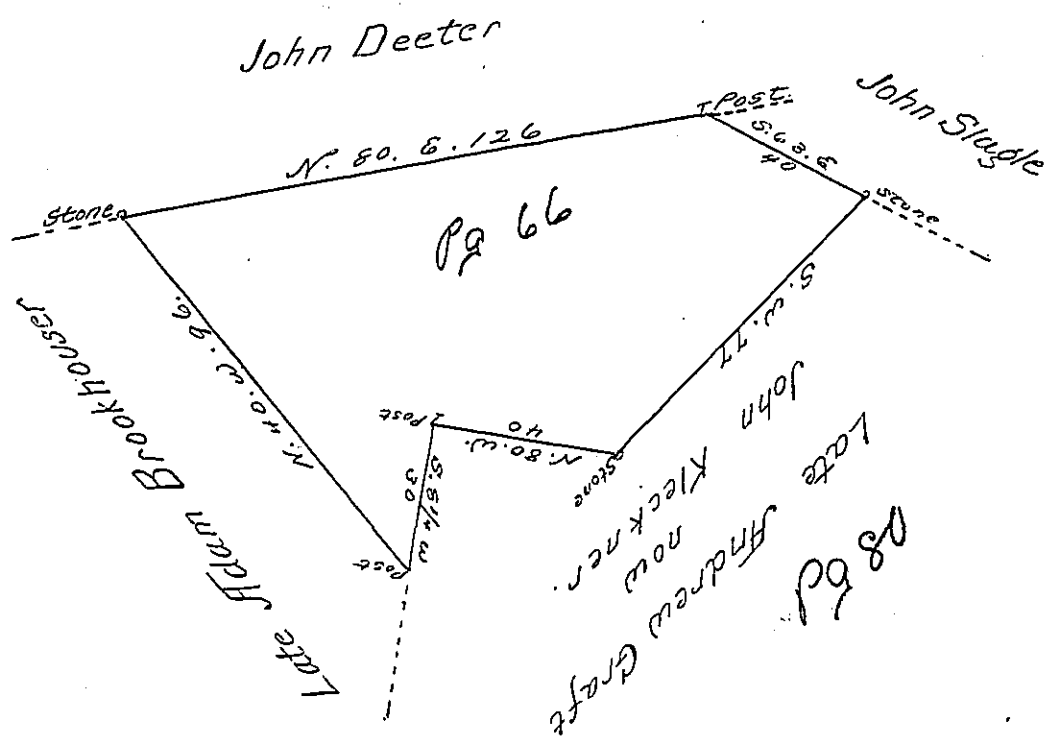 John Deeter
John Slagle
Post.
S.63.E
40
N. 80. E. 126
Stone
Stone
Pg 66
S. W. 77
N. 40. W. 96.
Post
N. 80. W.
40
Stone
S. 5 1/4 W
30
Post
Late Adam Brookhouser
Late Andrew Graft
now
John Kleckner.
Pg 80